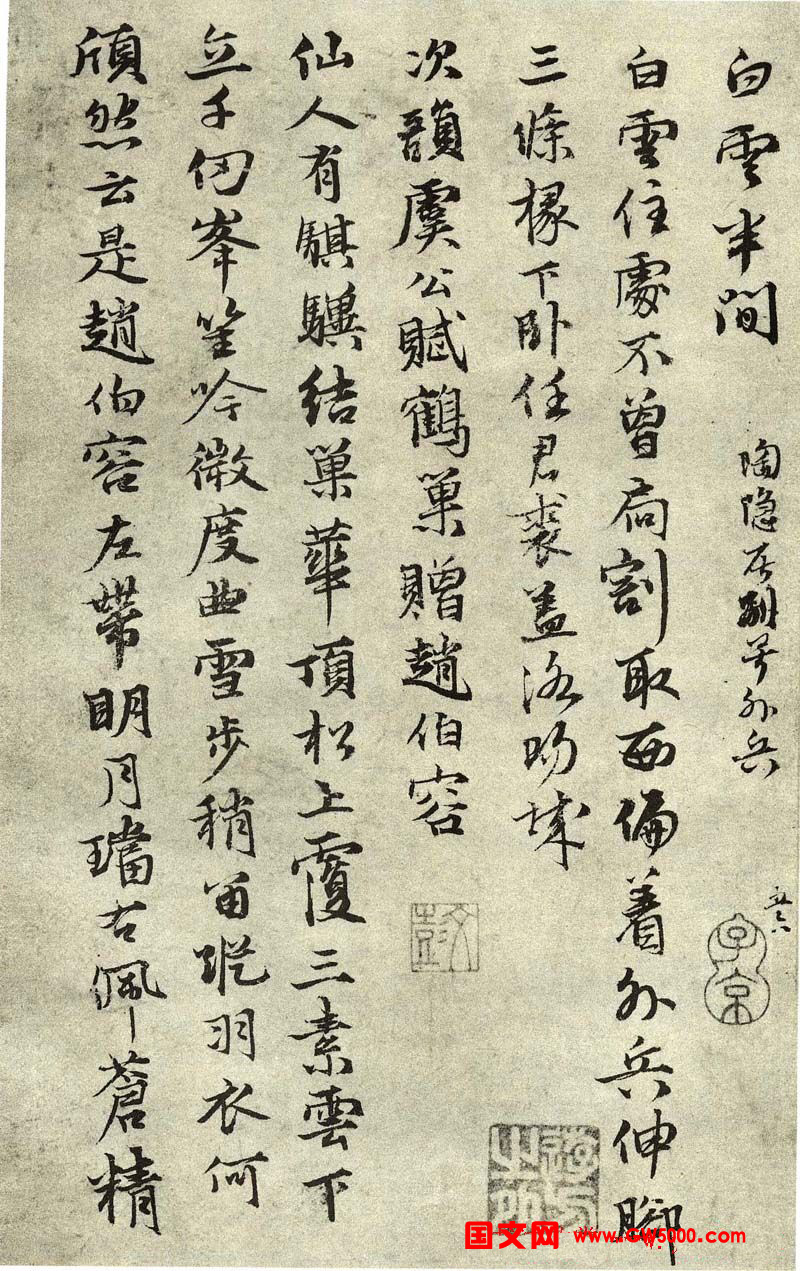 白雲半間 陶隐居别号外兵
子京
白雲住處不曾扃割取西偏着外兵伸脚
三條椽下卧任君裘盖洛阳城
次韻虞公賦鶴巢贈趙伯容
文彭
仙人有騏驥結巢華頂松上覆三素雲下
立千仞峯笙吟微度曲雪步稍留蹤羽衣何
頎然云是趙伯容左帶明月璫右佩蒼精
国文网 www.GW5000.com